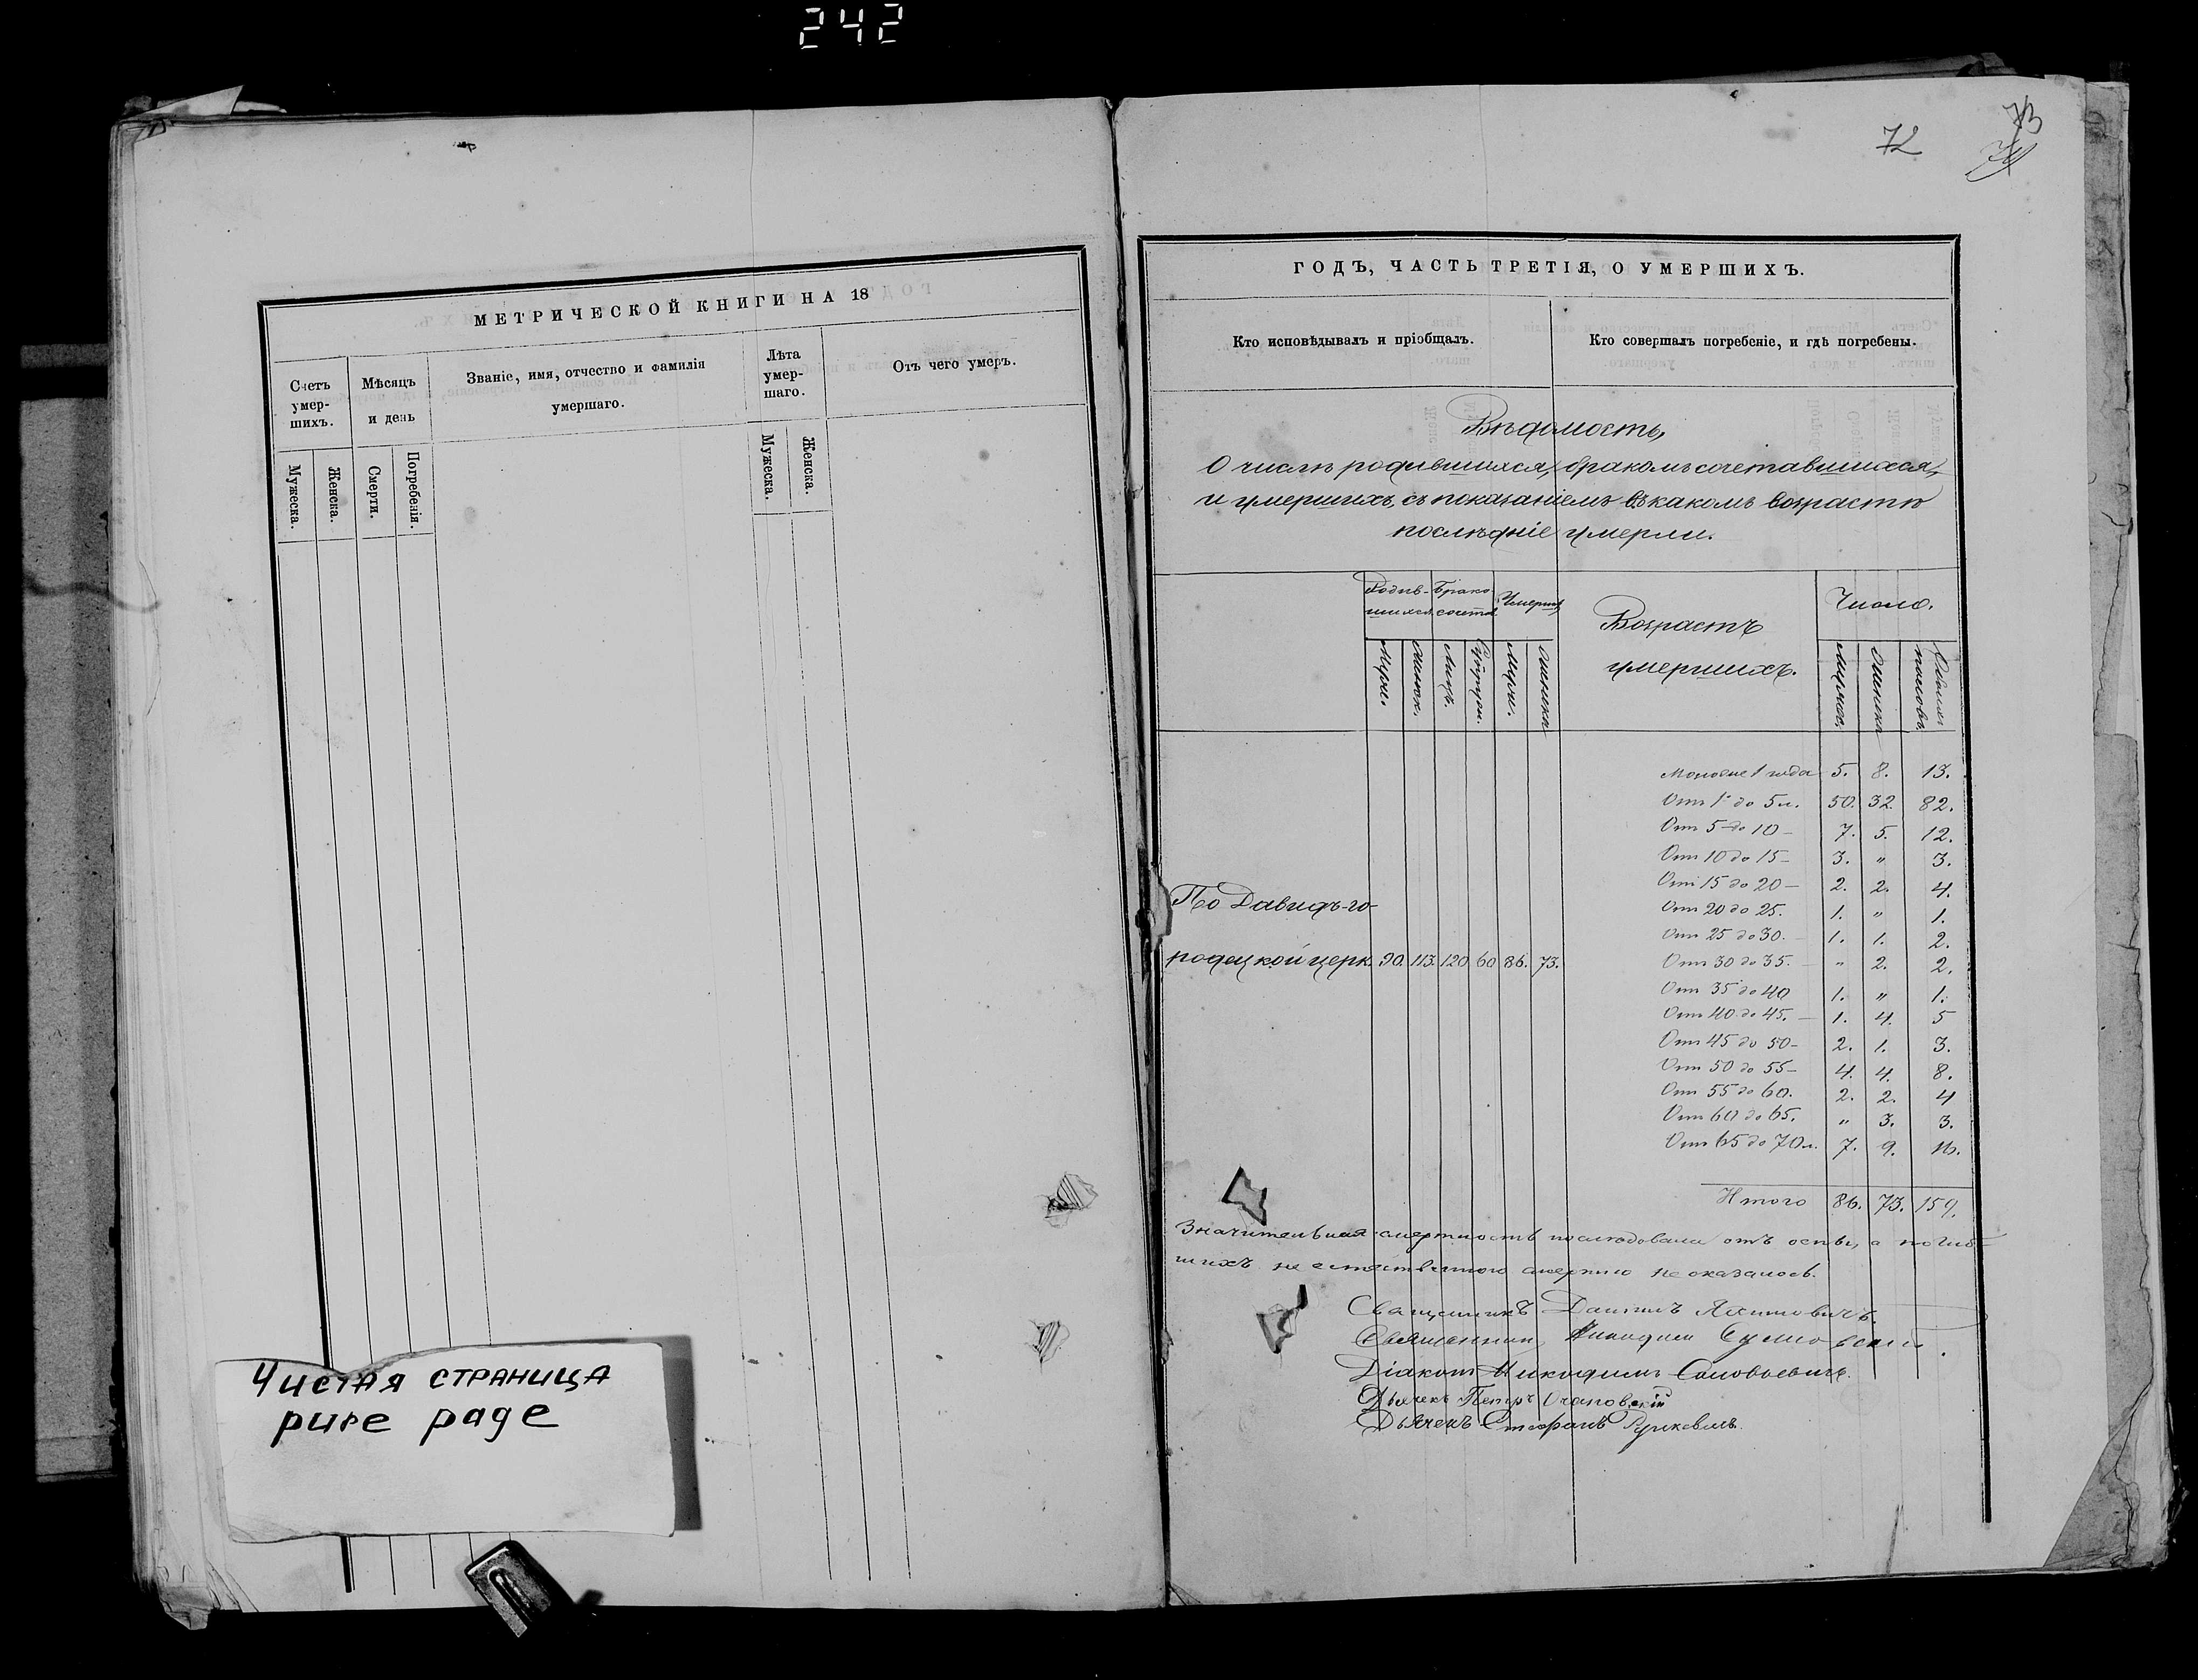 242
72
73
74
МЕТРИЧЕСКОЙ КНИГИ НА 18
Счетъ умер-шихъ.
Мѣсяцъ и день
Званіе, имя, отчество и фамилія умершаго.
Лѣта умер-шаго.
Отъ чего умеръ.
Мужеска.
Женска.
Смерти.
Погребенія.
Мужеска.
Женска.
Чистая страница
pure page
ГОДЪ, ЧАСТЬ ТРЕТІЯ, О УМЕРШИХЪ.
Кто исповѣдывалъ и пріобщалъ.
Кто совершалъ погребеніе, и гдѣ погребены.
Вѣдомость,
О числѣ родившихся, бракомъ сочетавшихся,
и умершихъ, съ показаніемъ въ какомъ возрастѣ
послѣдніе умерли.
Родив-шихся
Брако
Умерш
Возрастъ
умершихъ.
Число.
Лицъ.
По Давидъ-го-
родецкой церк. 90. 113. 120 60 86. 73.
1 года 5. 8. 13.
Отъ 1 до 5 л. 50. 32. 82.
Отъ 5 до 10 — 7. 5. 12.
Отъ 10 до 15 — 3. " 3.
Отъ 15 до 20 — 2. 2. 4.
Отъ 20 до 25. 1. " 1.
Отъ 25 до 30. — 1. 1. 2.
Отъ 30 до 35. — " 2. 2.
Отъ 35 до 40 1. " 1.
Отъ 40 до 45. — 1. 4. 5
Отъ 45 до 50 — 2. 1. 3.
Отъ 50 до 55 — 4. 4. 8.
Отъ 55 до 60. 2. 2. 4
Отъ 60 до 65. " 3. 3.
Отъ 65 до 70 л. 7. 9. 16.
Итого 86. 73. 159.
Значительная смертность последовала отъ оспы, а погиб-
шихъ не естественною смертію не оказалось.
Священникъ Даніилъ
Священникъ
Діаконъ Никодимъ Соловьевичъ.
Дьячекъ Петръ
Дьячекъ Стефанъ